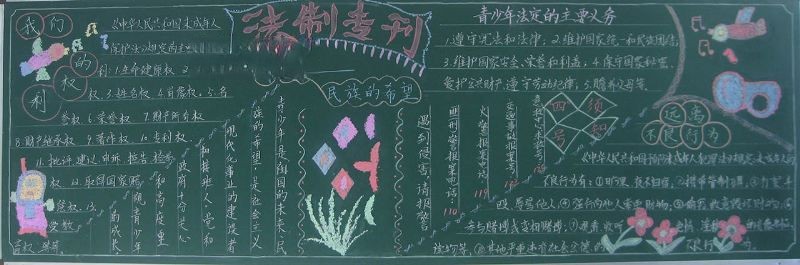 我们的权利
《中华人民共和国未成年人
保护法》规定的主要
利:1.生命健康权 2.
权 3.姓名权 4.肖像权 5.名
誉权 6.荣誉权 7.财产所有
8.财产继承权 9.著作权 10.专利权
11.批评、建议、申诉、控告、检举
权 12.取得国家赔
偿权 13.
法制专刊
民族的希望
青少年是祖国的未来,民
族的希望,是社会主义
现代化事业的建设者
和接班人,党和
政府十分关心
和高度重
视青少年
的成长
遇到侵害请报警
匪刑警报案电话:110
火警报案电话:119
交通事故报案电话:122
急救中心求救号:120
四号须知
青少年法定的主要义务
1.遵守宪法和法律; 2.维护国家统一和民族团结;
3.维护国家安全、荣誉和利益; 4.保守国家秘密、
爱护公共财产、遵守劳动纪律; 5.赡养父母等。
远离不良行为
《中华人民共和国预防未成年人犯罪法》规定未成年人的
不良行为有:①旷课、夜不归宿;②携带管制刀具;③打架斗
殴、辱骂他人;④强行向他人索要财物;⑤偷窃、故意毁坏财物;⑥
参与赌博或变相赌博;⑦观看、收听
读物等;⑨其他严重违背社会公德的
不良行为。